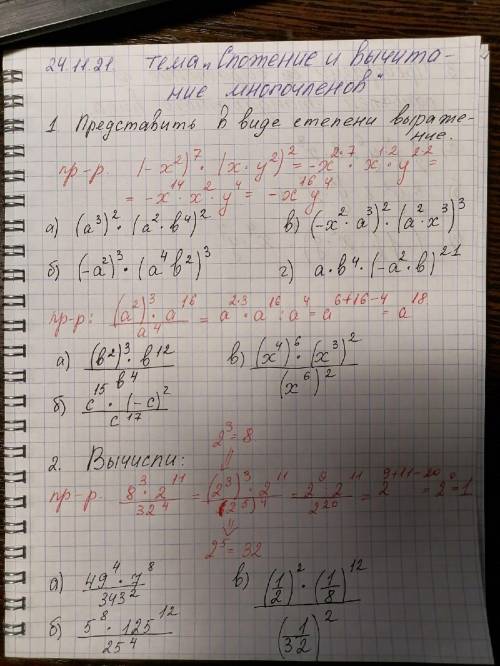 24.11.21 Тема „Сложение и вычита-
ние многочленов"
1 Представить в виде степени выраже-
ние.
пр-р. (-x²)⁷ · (x·y²)² = -x²·⁷ · x²·y²·² =
= -x¹⁴ · x² · y⁴ = -x¹⁶y⁴
а) (a³)² · (a²·b⁴)² в) (-x²·a³)² · (a²·x³)³
б) (-a²)³ · (a⁴b²)³ г) a·b⁴·(-a²·b)²¹
пр-р: (a²)³·a¹⁶ / a⁴ = a²·³·a¹⁶:a⁴ = a⁶⁺¹⁶⁻⁴ = a¹⁸
а) (b²)³·b¹² / b⁴ в) (x⁴)⁶·(x³)² / (x⁶)²
б) c¹⁵·(-c)² / c¹⁷
2³=8
2. Вычисли:
пр-р. 8³·2¹¹ / 32⁴ = (2³)³·2¹¹ / (2⁵)⁴ = 2⁹·2¹¹ / 2²⁰ = 2⁹⁺¹¹⁻²⁰ = 2⁰=1
2⁵=32
а) 49⁴·7⁸ / 343² в) (1/2)²·(1/8)¹² / (1/32)²
б) 5⁸·125¹² / 25⁴